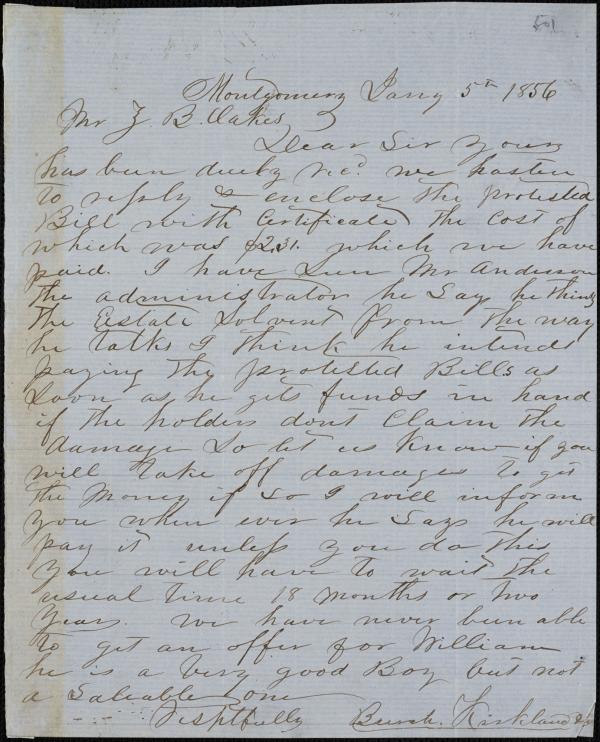 501
Montgomery Jany 5th 1856
Mr Z. B. Oakes
Dear Sir yours
has been duely recd. we hasten
to reply & enclose the protested
Bill with Certificate the cost of
which was $2.31. which we have
paid. I have Seen Mr Anderson
the administrator he Say he thinks
the Estate Solvent from the way
he talks I think he intends
paying the protested Bills as
Soon as he gets funds in hand
if the holders dont Claim the
damage So let us know if you
will take off damages to get
the Money if So I will inform
you when ever he Says he will
pay it unless you do this
you will have to wait the
usual time 18 months or two
Years. We have never been able
to get an offer for William
he is a very good Boy but not
a Saleable one
Respttfully Burch. Kirkland &